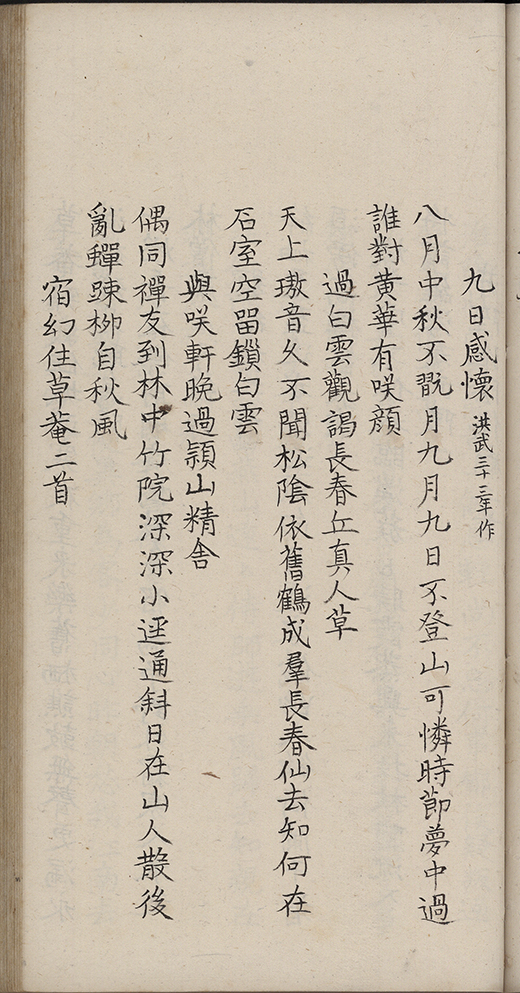 九日感懷 洪武三十三年作
八月中秋不翫月九月九日不登山可憐時節夢中過
誰對黃華有咲顔
過白雲觀謁長春丘真人草
天上璈音久不聞松陰依舊鶴成羣長春仙去知何在
石室空畱鎖白雲
與咲軒晚過潁山精舍
偶同禪友到林中竹院深深小逕通斜日在山人散後
亂蟬踈桺自秋風
宿幻住草菴二首